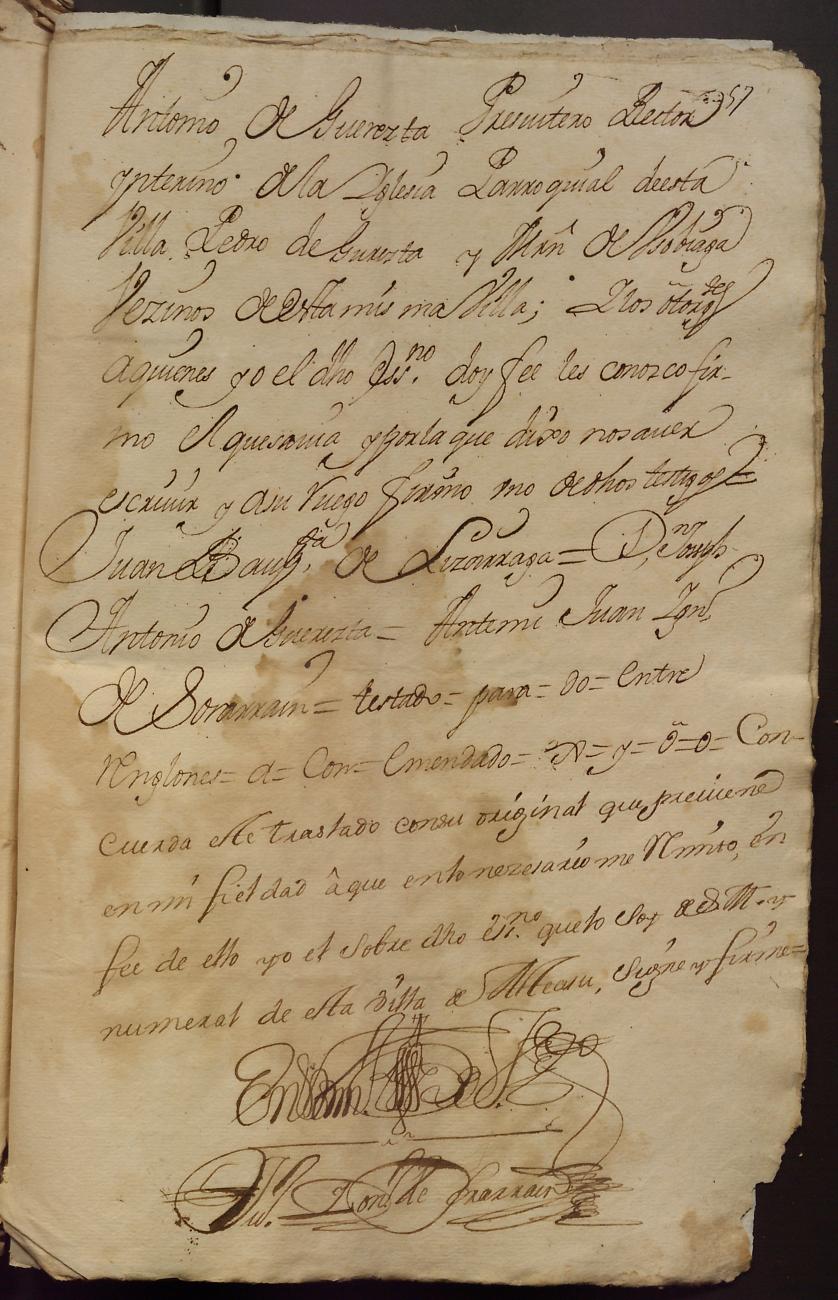 57
Antonio de Guerezta Presvitero Rector
ynterino de la Yglesia Parroquial de esta
Villa Pedro de Guerezta y Mrn de
Vezinos de esta misma Villa; Y los otorg.des
a quienes yo el dho Ess.no doy fee les conozco fir-
mo el que savia y por la que dixo no saver
escrivir y a su ruego firmo uno de dhos testigos =
Juan Baup.ta de Lizarraga = D.n Joseph
Antonio de Guerezta = Antemi Juan Ign.
de Sorarrain = testado = para = do = entre
renglones = a = Con = emendado = = y = o = o = Con-
cuerda este traslado con su original que previene
en mi fieldad â que en lo nezesario me remito, en
fee de ello yo el sobre dho es.no que lo soy de S. M. y
numeral de esta villa de , signe y firme =
En testim.
de